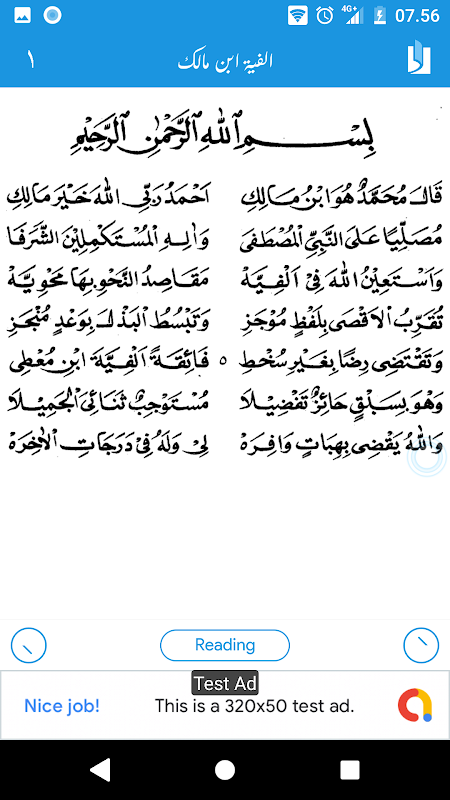 07.56
4G+
١ الفية ابن مالك
بِسْمِ اللهِ الرَّحْمٰنِ الرَّحِيْمِ
قَالَ مُحَمَّدٌ هُوَ ابْنُ مَالِكِ اَحْمَدُ رَبِّى اللهَ خَيْرَ مَالِكِ
مُصَلِّيًا عَلَى النَّبِيِّ الْمُصْطَفَى وَاٰلِهِ الْمُسْتَكْمِلِيْنَ الشَّرَفَا
وَاَسْتَعِيْنُ اللهَ فِى اَلْفِيَّهْ مَقَاصِدُ النَّحْوِ بِهَا مَحْوِيَّهْ
تُقَرِّبُ الْاَقْصَى بِلَفْظٍ مُوْجَزِ وَتَبْسُطُ الْبَذْلَ بِوَعْدٍ مُنْجَزِ
وَتَقْتَضِى رِضًا بِغَيْرِ سُخْطِ ٥ فَائِقَةً اَلْفِيَّةَ ابْنِ مُعْطِى
وَهْوَ بِسَبْقٍ حَائِزٌ تَفْضِيْلَا مُسْتَوْجِبٌ ثَنَائِيَ الْجَمِيْلَا
وَاللهُ يَقْضِى بِهِبَاتٍ وَافِرَهْ لِيْ وَلَهُ فِيْ دَرَجَاتِ الْاٰخِرَهْ
Reading
Test Ad
Nice job! This is a 320x50 test ad.